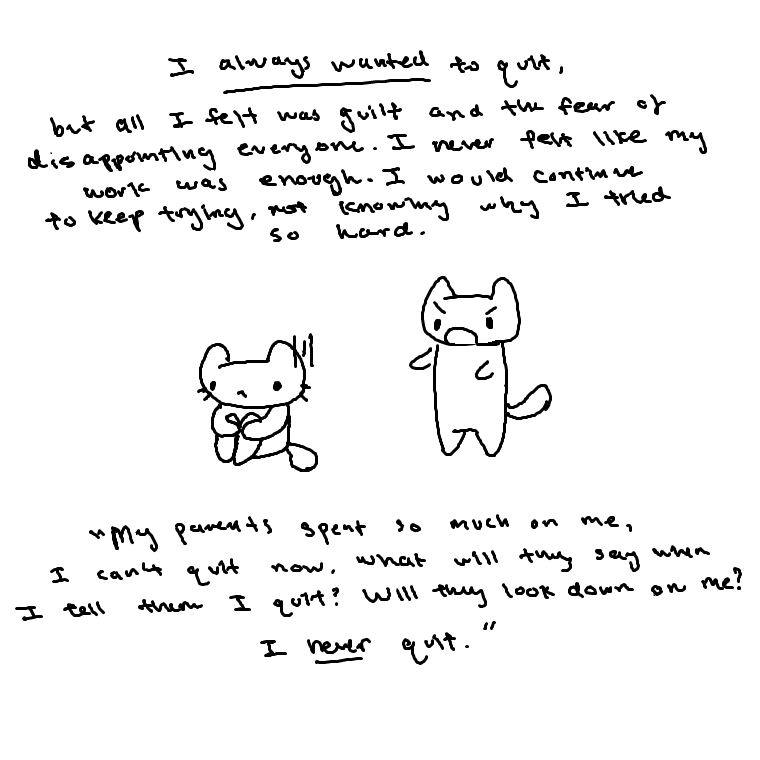 I always wanted to quit,
but all I felt was guilt and the fear of
disappointing everyone. I never felt like my
work was enough. I would continue
to keep trying, not knowing why I tried
so hard.
"My parents spent so much on me,
I can't quit now. What will they say when
I tell them I quit? Will they look down on me?
I never quit."